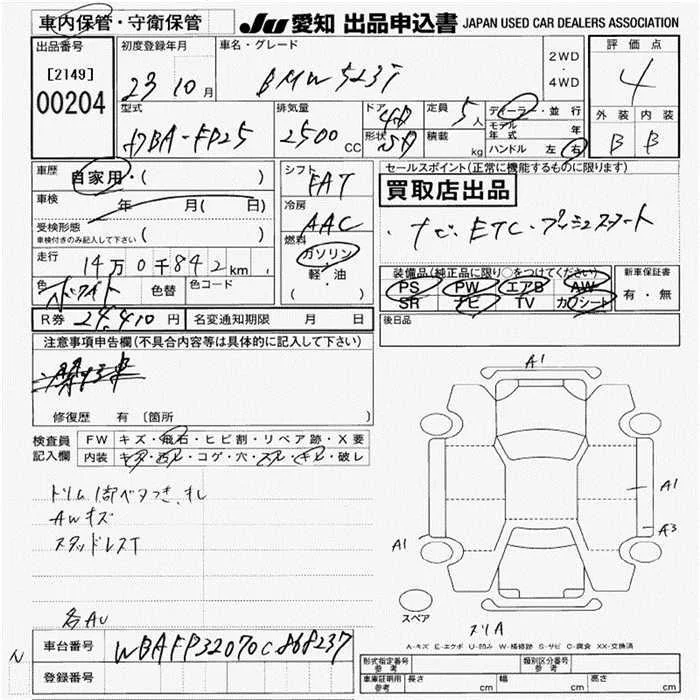 車内保管・守衛保管
JU 愛知 出品申込書 JAPAN USED CAR DEALERS ASSOCIATION
出品番号
[2149]
00204
初度登録年月
23 10月
車名・グレード
BMW 523i
2WD
・
4WD
評価点
4
型式
DBA-FP25
排気量
2500 CC
ドア
4D
形状
SD
定員
5人
積載
kg
ディーラー・並行
モデル年式 年
ハンドル 左 右
外装 内装
B B
車歴
自家用・( )
車検
年 月( 日)
受検形態
車検付きのみ記入して下さい
走行
14万0千842km
色
ホワイト
色替
色コード
シフト
FAT
冷房
AAC
燃料
ガソリン
軽・油
( )
セールスポイント(正常に機能するものに限ります)
買取店出品
・ナビ・ETC・プッシュスタート
装備品(純正品に限り○をつけてください)
PS PW エアB AW
SR ナビ TV カワシート
新車保証書
有・無
R券 24,410円 名変通知期限 月 日
後日品
注意事項申告欄(不具合内容等は具体的に記入して下さい)
修復歴 有 〔箇所
検査員記入欄
FW キズ・飛石・ヒビ割・リペア跡・X要
内装 キズ・汚れ・コゲ・穴・スレ・キレ・破レ
AWキズ
スタッドレスT
各AU
A1
A1
A3
A1
スペア
スリA
A-キズ E-エクボ U-凹み W-補修跡 S-サビ C-腐食 XX-交換済
N
車台番号
WBAFP32070C868237
登録番号
形式指定番号
参考
類別区分番号
参考
車庫証明用
参考
長さ cm 幅 cm 高さ cm